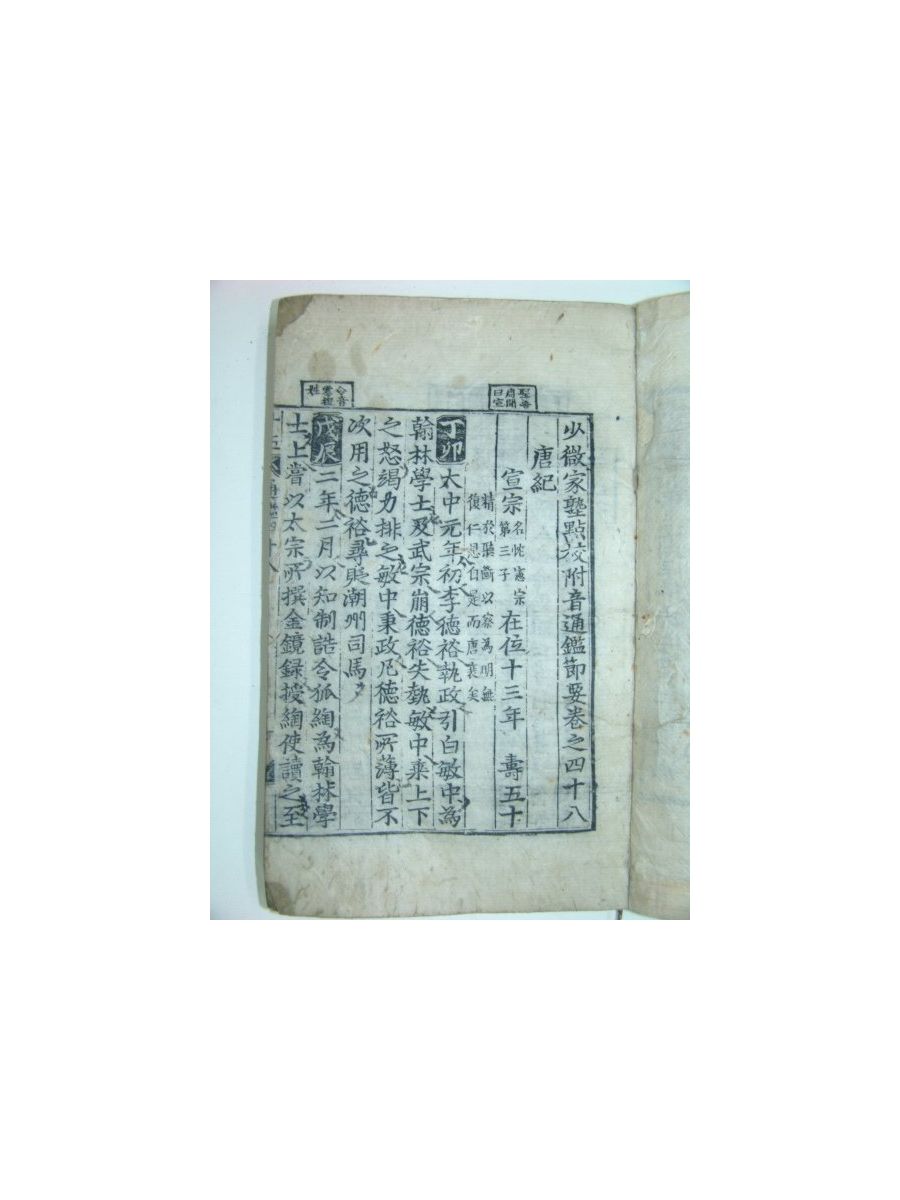 少微家塾點校附音通鑑節要卷之四十八
唐紀
宣宗名忱憲宗第三子在位十三年 壽五十
精於聽斷以察為明無
復仁恩自是而唐衰矣
丁卯大中元年初李德裕執政引白敏中為
翰林學士及武宗崩德裕失勢敏中乘上下
之怒竭力排之敏中秉政凡德裕所薄皆不
次用之德裕尋貶潮州司馬
戊辰二年二月以知制誥令狐綯為翰林學
士上嘗以太宗所撰金鏡録授綯使讀之至
聖善周聞曰宣
令音
姓